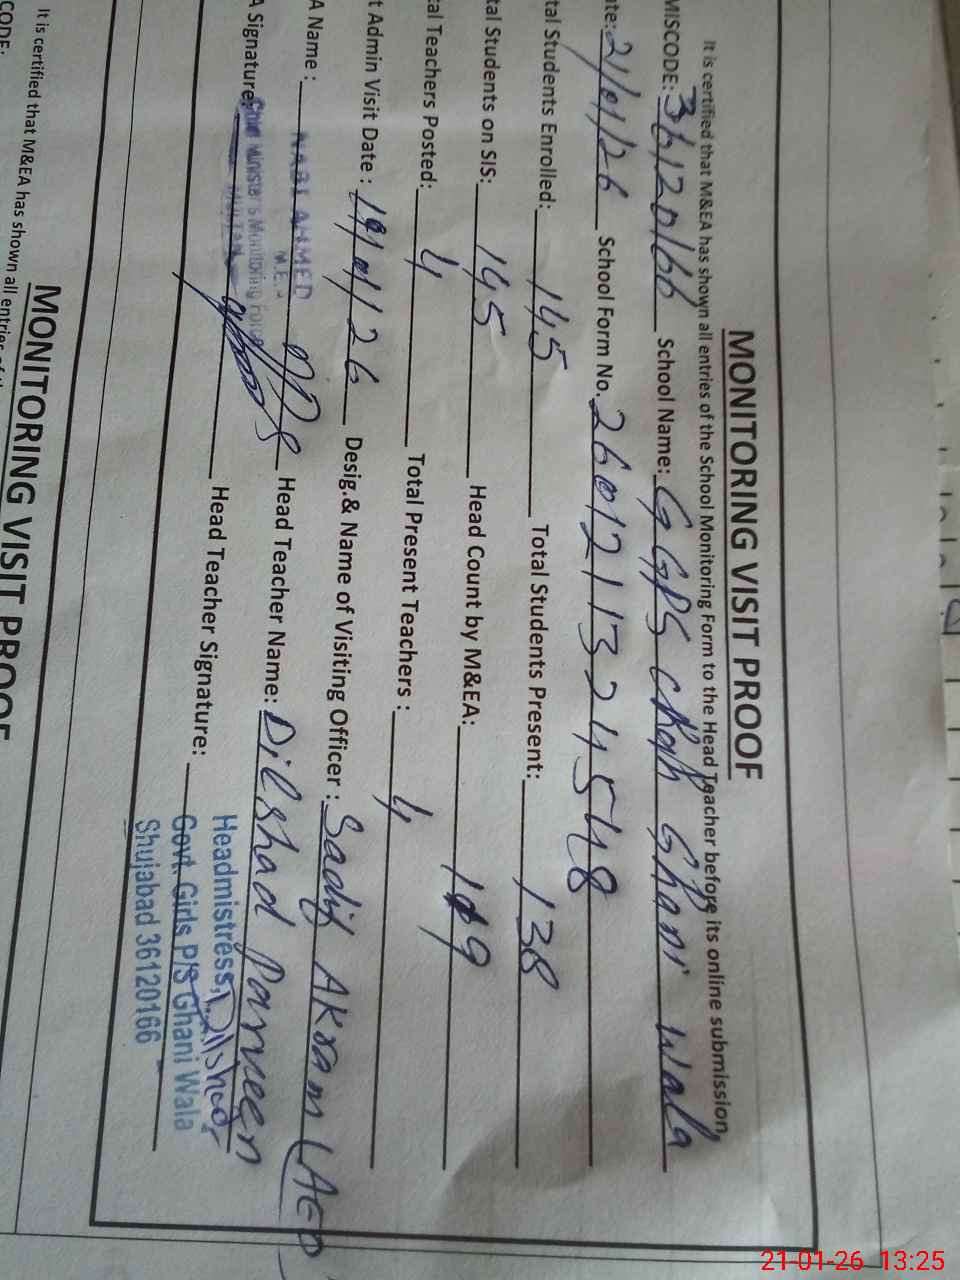 MONITORING VISIT PROOF
It is certified that M&EA has shown all entries of the School Monitoring Form to the Head Teacher before its online submission.
MISCODE: 36120166 School Name: GGPS chah Ghani Wala
ate: 21/01/26 School Form No. 2601211324548
tal Students Enrolled: 145 Total Students Present: 138
tal Students on SIS: 145 Head Count by M&EA: 109
tal Teachers Posted: 4 Total Present Teachers : 4
t Admin Visit Date : 19/01/26 Desig.& Name of Visiting Officer : Sadif Akram (AEO
A Name : NABI AHMED Head Teacher Name: Dilshad Parveen
M.E.
A Signature: Chief Minister's Monitoring Force Head Teacher Signature: Dilshad
MULTAN
Headmistress,
Govt. Girls P/S Ghani Wala
Shujabad 36120166
MONITORING VISIT PROOF
It is certified that M&EA has shown all entries of the
CODE:
21-01-26 13:25